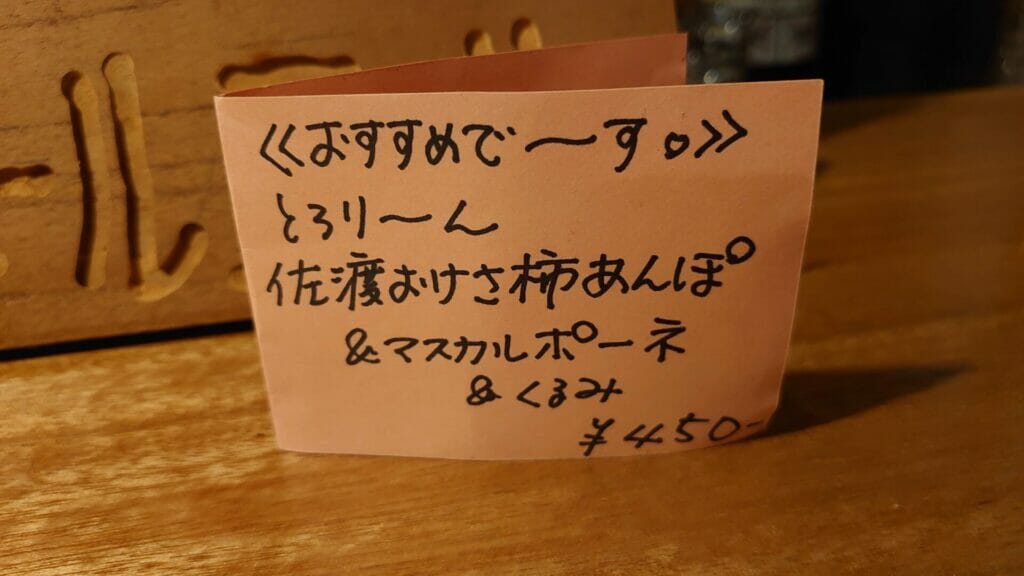 <<おすすめで〜す。>>
とろり〜ん
佐渡おけさ柿あんぽ
&マスカルポーネ
&くるみ
¥450-